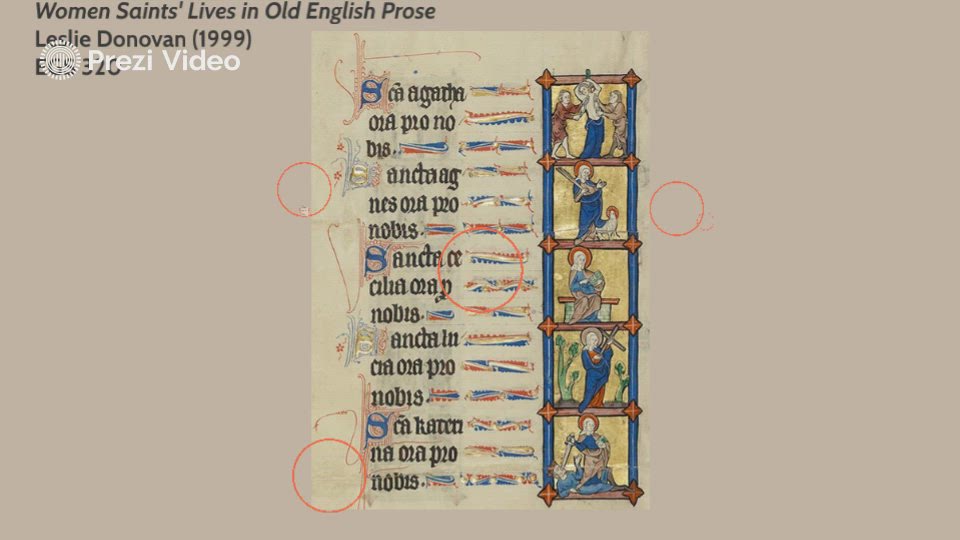 Women Saints' Lives in Old English Prose
Leslie Donovan (1999)
Prezi Video
Scā agatha
ora pro no
bis.
Sancta ag
nes ora pro
nobis.
Sancta ce
cilia ora p
nobis.
Sancta lu
cia ora pro
nobis.
Scā kateri
na ora pro
nobis.